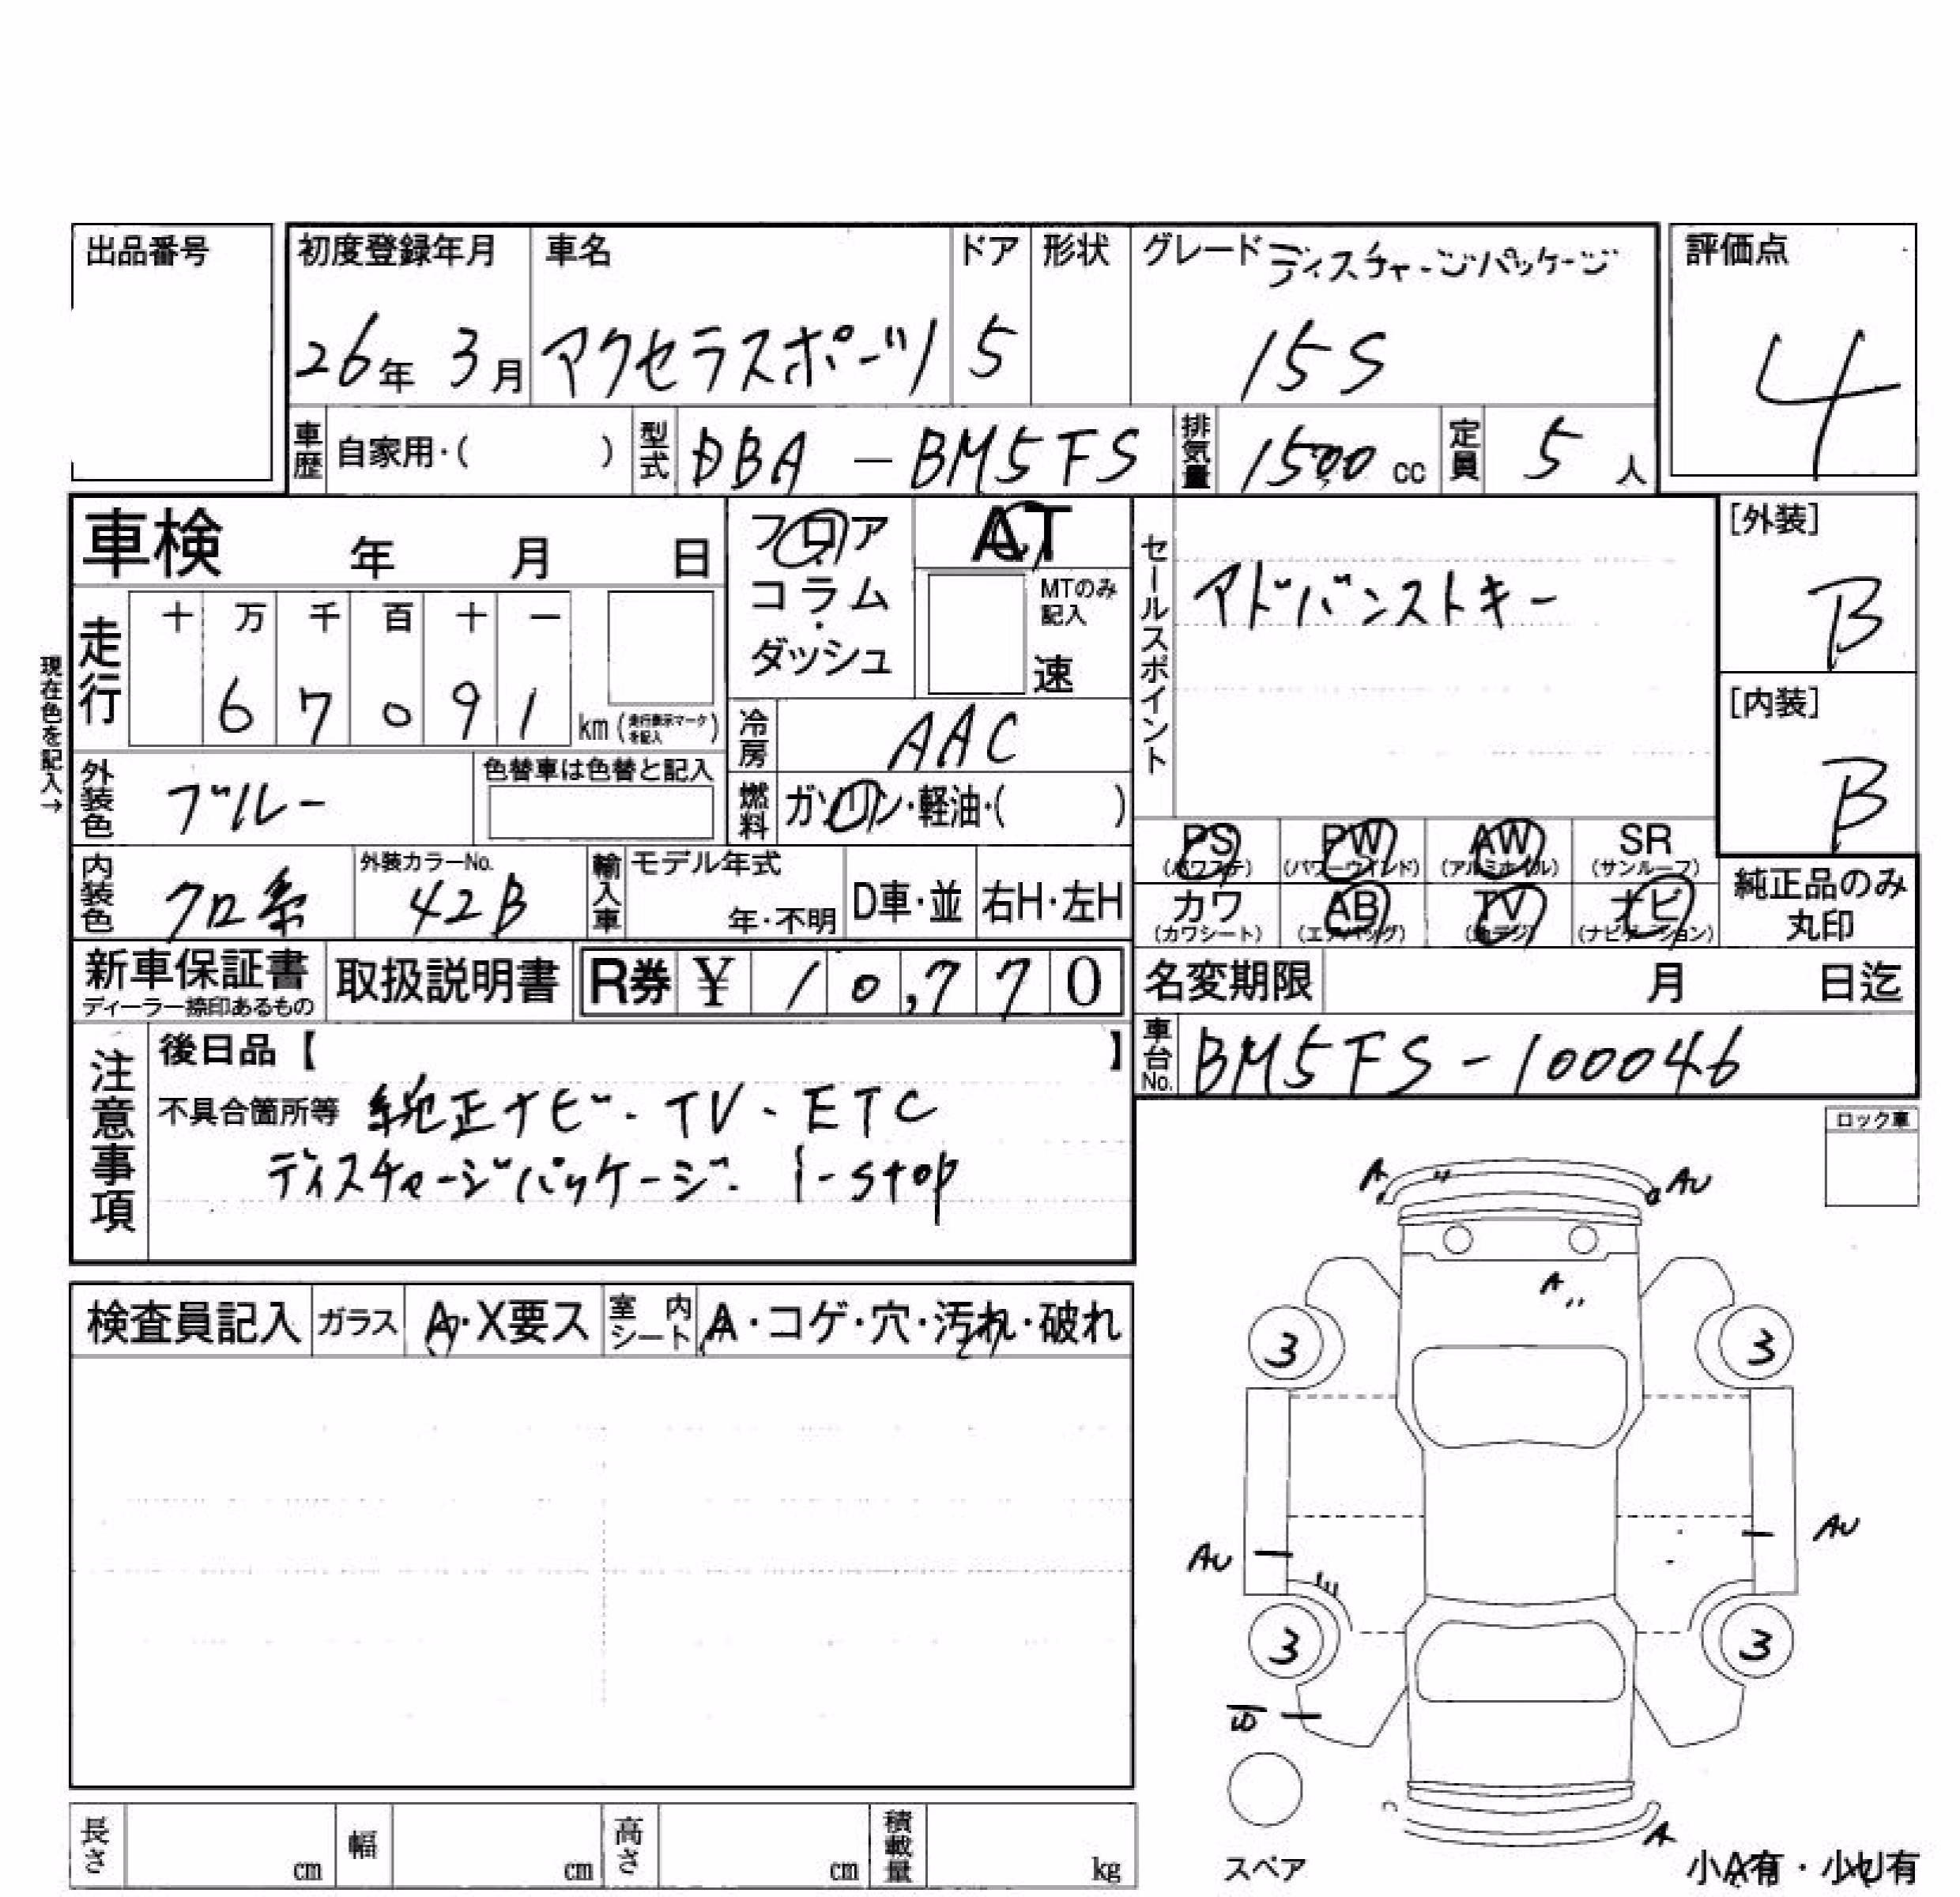 出品番号
初度登録年月 車名 ドア 形状 グレード ディスチャージパッケージ
評価点
26年 3月 アクセラスポーツ 5 15S
4
車歴 自家用・( ) 型式 DBA-BM5FS 排気量 1500 cc 定員 5 人
車検 年 月 日
フロア コラム・ダッシュ
AT
MTのみ記入
速
セールスポイント
アドバンストキー
[外装]
B
[内装]
B
現在色を記入→
走行 十 万 千 百 十 一
6 7 0 9 1 km (走行表示マークを記入)
冷房 AAC
外装色 ブルー 色替車は色替と記入
燃料 ガソリン・軽油・( )
PS (パワステ) PW (パワーウインド) AW (アルミホイル) SR (サンルーフ)
カワ (カワシート) AB (エアバッグ) TV ナビ (ナビゲーション)
純正品のみ丸印
内装色 クロ系 外装カラーNo. 42B 輸入車 モデル年式 年・不明 D車・並 右H・左H
新車保証書 ディーラー捺印あるもの 取扱説明書 R券 ¥ 10,770
名変期限 月 日迄
車台No. BM5FS-100046
注意事項
後日品【 】
不具合箇所等 純正ナビ・TV・ETC
ディスチャージパッケージ・i-stop
ロック車
A AU
A
3 3
AU AU
3 3
検査員記入 ガラス A・X要ス 室内シート A・コゲ・穴・汚れ・破れ
A
長さ cm 幅 cm 高さ cm 積載量 kg
スペア
小A有・小U有